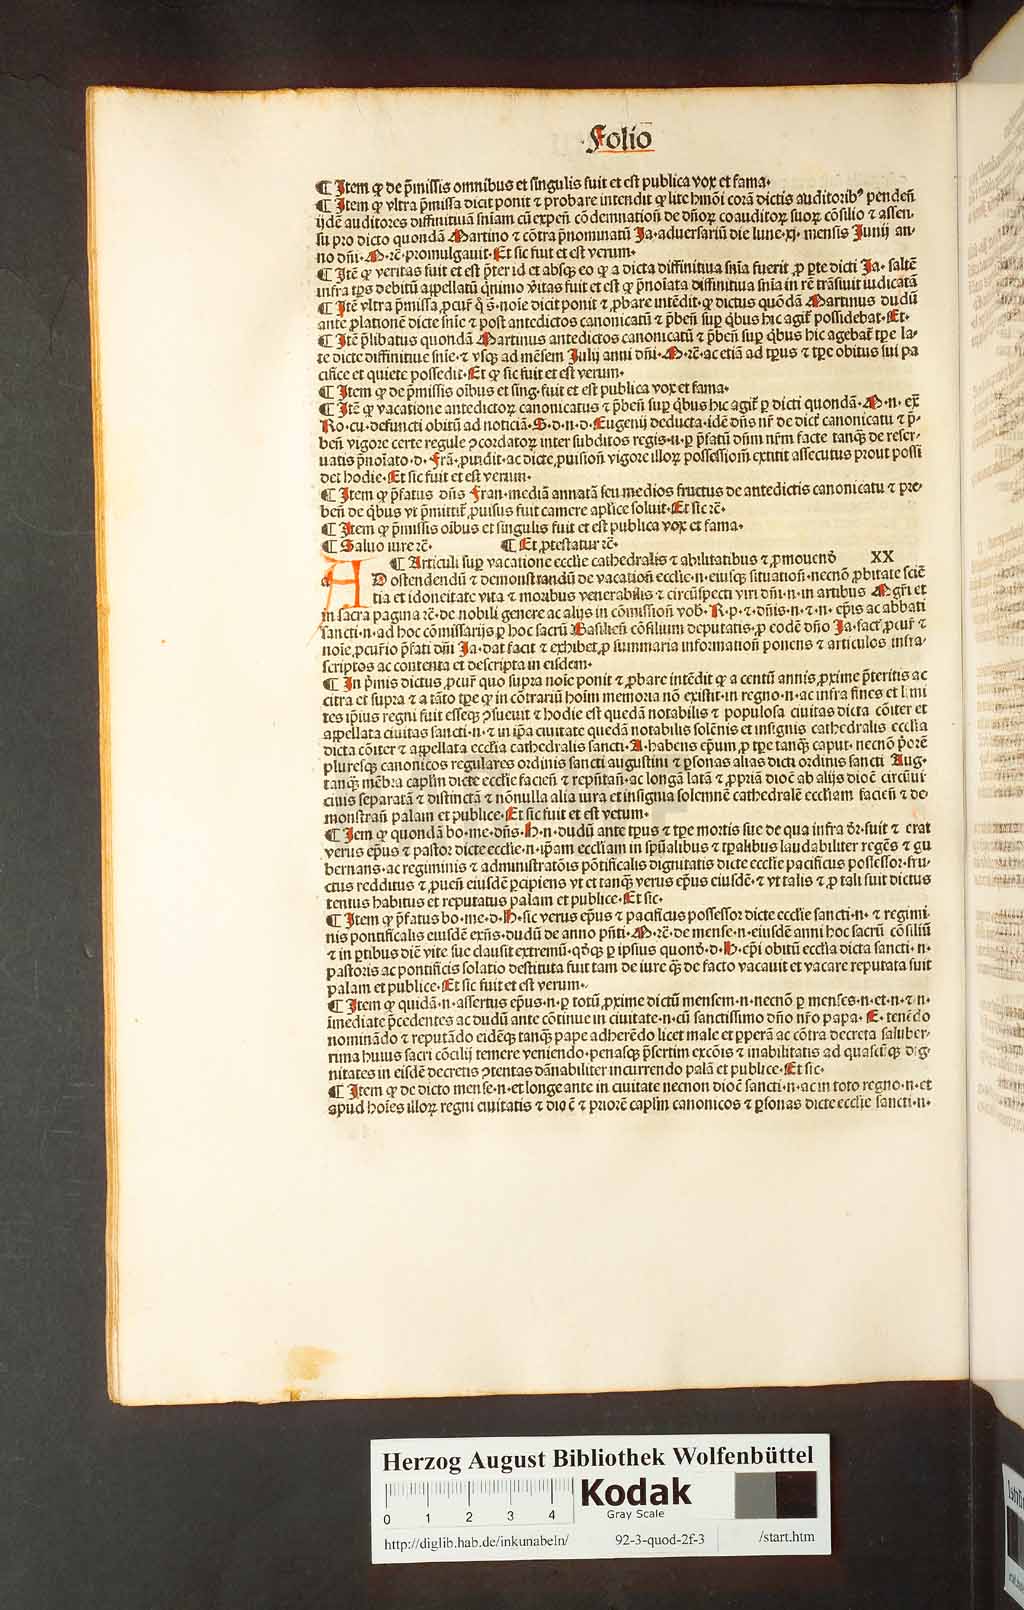 Folio
¶ Item ꝙ de p̄missis omnibus et singulis fuit et est publica vox et fama·
¶ Item ꝙ vltra p̄missa dicit ponit ⁊ probare intendit ꝙ lite hmōi corā dictis auditoribꝰ pendeñ
ijdē auditores diffinitiuā sniam cū expeñ cōdemnatioñ de dñoꝝ coauditoꝝ suoꝝ cōsilio ⁊ assen-
su pro dicto quondā Martino ⁊ cōtra p̄nominatū Ja·aduersariū die lune·xj· mensis Junij an-
no dñi·M·rē·promulgauit·Et sic fuit et est verum·
¶ Itē ꝙ veritas fuit et est p̄ter id et absqꝫ eo ꝙ a dicta diffinitiua snīa fuerit ꝓ ꝑte dicti Ja· saltē
infra tp̄s debitū appellatū qnimo v̄itas fuit et est ꝙ p̄noīata diffinitiua snia in rē trāsiuit iudicatā
¶ Itē vltra p̄missa ꝓcur̄ q̄ s·noīe dicit ponit ⁊ ꝓbare intēdit·ꝙ dictus quōdā Martinus dudū
ante ꝓlationē dicte snīe ⁊ post antedictos canonicatū ⁊ p̄beñ suꝑ qbus hic agit̄ possidebat·Et·
¶ Itē p̄libatus quondā Martinus antedictos canonicatū ⁊ p̄beñ suꝑ qbus hic agebat̄ tp̄e la-
te dicte diffinitiue snīe·⁊ vsqꝫ ad mēsem Julij anni dñi·M·rē·ac etiā ad tp̄us ⁊ tp̄e obitus sui pa
cifice et quiete possedit·Et ꝙ sic fuit et est verum·
¶ Item ꝙ de p̄missis oībus et sing·fuit et est publica vox et fama·
¶ Itē ꝙ vacatione antedictoꝝ canonicatus ⁊ p̄beñ suꝑ qbus hic agit̄ ꝑ dicti quondā·M·n·ex̄
Ro·cu·defuncti obitū ad noticiā·S·d·n·d·Eugenij deducta·idē dñs nr̄ de dict̄ canonicatu ⁊ p̄-
beñ vigore certe regule ꝯcordatoꝝ inter subditos regis·n·ꝑ p̄fatū dñm nr̄m facte tanqꝫ de reser-
uatis p̄noīato·d·Frā·ꝓuidit·ac dicte ꝓuisioñ vigore illoꝝ possessionē extitit assecutus prout possi
det hodie·Et sic fuit et est verum·
¶ Item ꝙ p̄fatus dñs Fran·mediā annatā seu medios fructus de antedictis canonicatu ⁊ pre-
beñ de qbus vt p̄mittit̄ ꝓuisus fuit camere apl̄ice soluit·Et sic rē·
¶ Item ꝙ p̄missis oībus et singulis fuit et est publica vox et fama·
¶ Saluo iure rē· ¶ Et ꝓtestatur rē·
¶ Articuli suꝑ vacatione ecclīe cathedralis ⁊ abilitatibus ⁊ ꝓmouenđ XX
AD ostendendū ⁊ demonstrandū de vacatioñ ecclīe·n·eiusqꝫ situatioñ·necnō ꝓbitate sciē
tia et idoneitate vita ⁊ moribus venerabilis ⁊ circūspecti viri dñi·n·in artibus Mgr̄i et
in sacra pagina rē·de nobili genere ac alijs in cōmissioñ vob·R·p·⁊·dñis·n·⁊·n· ep̄is ac abbati
sancti·n·ad hoc cōmissarijs ꝑ hoc sacrū Basilieñ cōsilium deputatis·ꝓ eodē dño Ja·fact̄ ꝓcur̄ ⁊
noīe ꝓcur̄io p̄fati dñi Ja·dat facit ⁊ exhibet·ꝓ summaria informatioñ ponens ⁊ articulos infra-
scriptos ac contenta et descripta in eisdem·
¶ In p̄mis dictus ꝓcur̄ quo supra noīe ponit ⁊ ꝓbare intēdit ꝙ a centū annis ꝓxime p̄teritis ac
citra et supra ⁊ a tāto tp̄e ꝙ in cōtrariū hoīm memoria nō existit·in regno·n·ac infra fines et limi
tes ip̄ius regni fuit esseqꝫ ꝯsueuit ⁊ hodie est quedā notabilis ⁊ populosa ciuitas dicta cōiter et
appellata ciuitas sancti·n·⁊ in ip̄a ciuitate quedā notabilis solēnis et insignis cathedralis ecclīa
dicta cōiter ⁊ appellata ecclīa cathedralis sancti·A·habens ep̄um ꝓ tp̄e tanqꝫ caput· necnō p̄orē
pluresqꝫ canonicos regulares ordinis sancti augustini ⁊ ꝑsonas alias dicti ordinis sancti Aug·
tanqꝫ mēbra capl̄m dicte ecclīe facieñ ⁊ rep̄ntañ·ac longā latā ⁊ ꝓpriā dioč ab alijs dioč circūui
cinis separatā ⁊ distinctā ⁊ nōnulla alia iura et insignia solemnē cathedralē ecclīam facieñ ⁊ de
monstrañ palam et publice·Et sic fuit et est verum·
¶ Jem ꝙ quondā bo·me·dñs·H·n·dudū ante tp̄us ⁊ tp̄e mortis sue de qua infra dr̄·fuit ⁊ erat
verus ep̄us ⁊ pastor dicte ecclīe·n·ip̄am ecclīam in sp̄ualibus ⁊ tp̄alibus laudabiliter regēs ⁊ gu
bernans·ac regiminis ⁊ administratōis pōtificalis dignitatis dicte ecclīe pacificus possessor·fru-
ctus redditus ⁊ ꝓueñ eiusdē ꝑcipiens vt et tanqꝫ verus ep̄us eiusdē·⁊ vt talis ⁊ ꝓ tali fuit dictus
tentus habitus et reputatus palam et publice·Et sic·
¶ Item ꝙ p̄fatus bo·me·d·H·sic verus ep̄us ⁊ pacificus possessor dicte ecclīe sancti·n· ⁊ regimi
nis pontificalis eiusdē exñs·dudū de anno p̄nti·M·rē·de mense·n·eiusdē anni hoc sacrū cōsiliū
⁊ in ꝑtibus diē vite sue clausit extremū·qōqꝫ ꝑ ipsius quonđ·d·H·ep̄i obitū ecclīa dicta sancti·n·
pastoris ac pontificis solatio destituta fuit tam de iure qꝫ de facto vacauit et vacare reputata fuit
palam et publice·Et sic fuit et est verum·
¶ Item ꝙ quidā·n·assertus ep̄us·n·ꝑ totū ꝓxime dictū mensem·n·necnō ꝑ menses·n·et·n·⁊·n·
īmediate p̄cedentes ac dudū ante cōtinue in ciuitate·n·cū sanctissimo dño nr̄o papa·E·tenēdo
nominādo ⁊ reputādo eidēqꝫ tanqꝫ pape adherēdo licet male et ꝑperā ac cōtra decreta saluber-
rima huius sacri cōcilij temere veniendo·penasqꝫ p̄sertim excōis ⁊ inabilitatis ad quascūqꝫ dig-
nitates in eisdē decretis ꝯtentas dānabiliter incurrendo palā et publice·Et sic·
¶ Item ꝙ de dicto mense·n·et longe ante in ciuitate necnon dioč sancti·n·ac in toto regno·n·et
apud hoīes illoꝝ regni ciuitatis ⁊ dioč ⁊ priorē capl̄m canonicos ⁊ ꝑsonas dicte ecclīe sancti·n·
Herzog August Bibliothek Wolfenbüttel
0 1 2 3 4
Kodak
Gray Scale
http://diglib.hab.de/inkunabeln/ 92-3-quod-2f-3 /start.htm